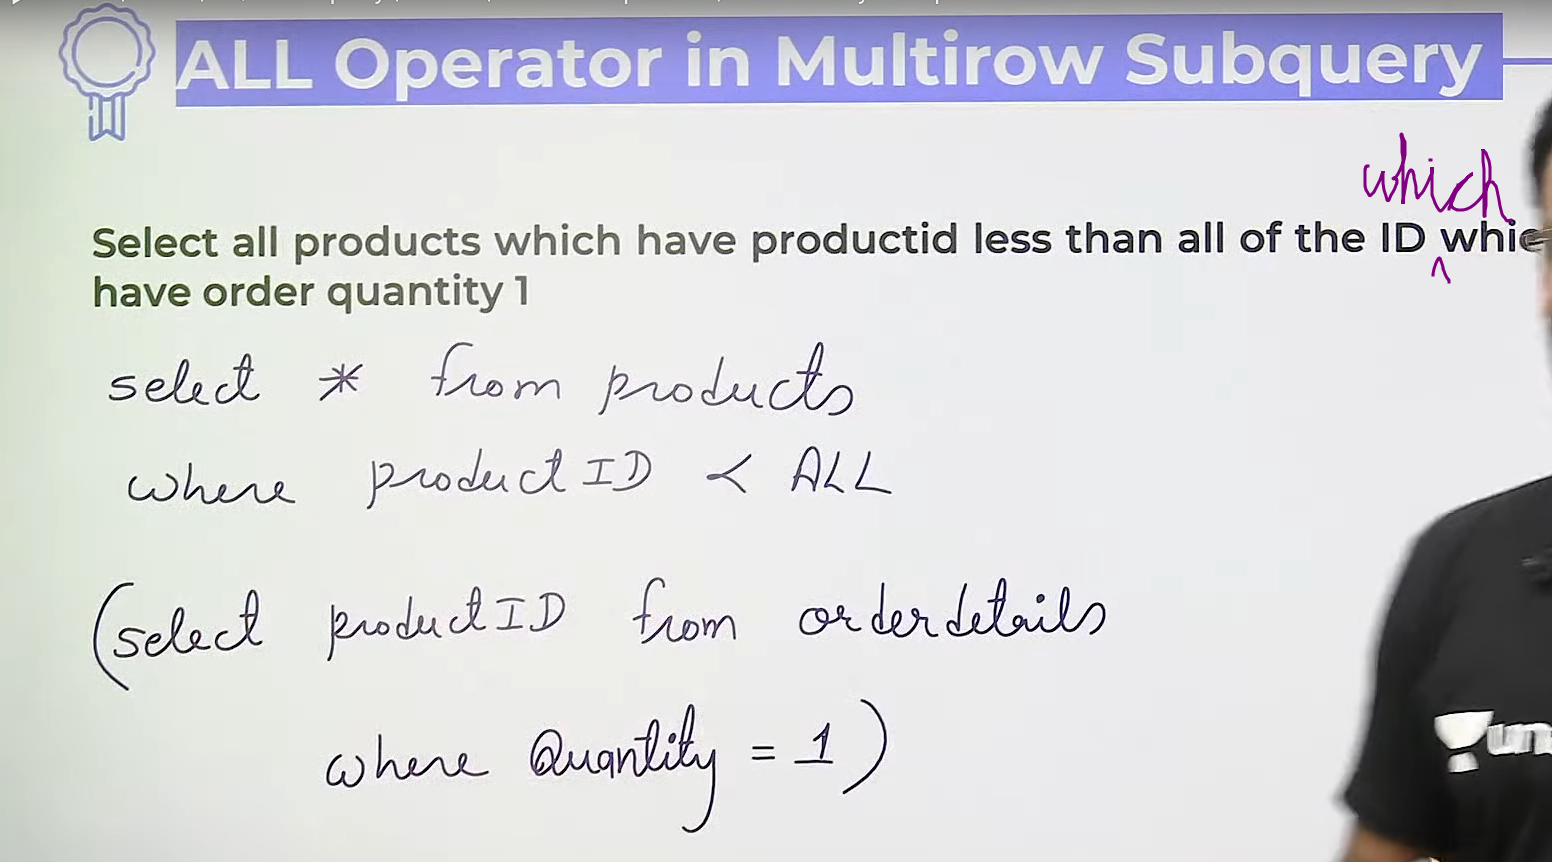 ALL Operator in Multirow Subquery
which
Select all products which have productid less than all of the ID whic
have order quantity 1
select * from products
where productID < ALL
(select productID from orderdetails
where Quantity = 1)
un